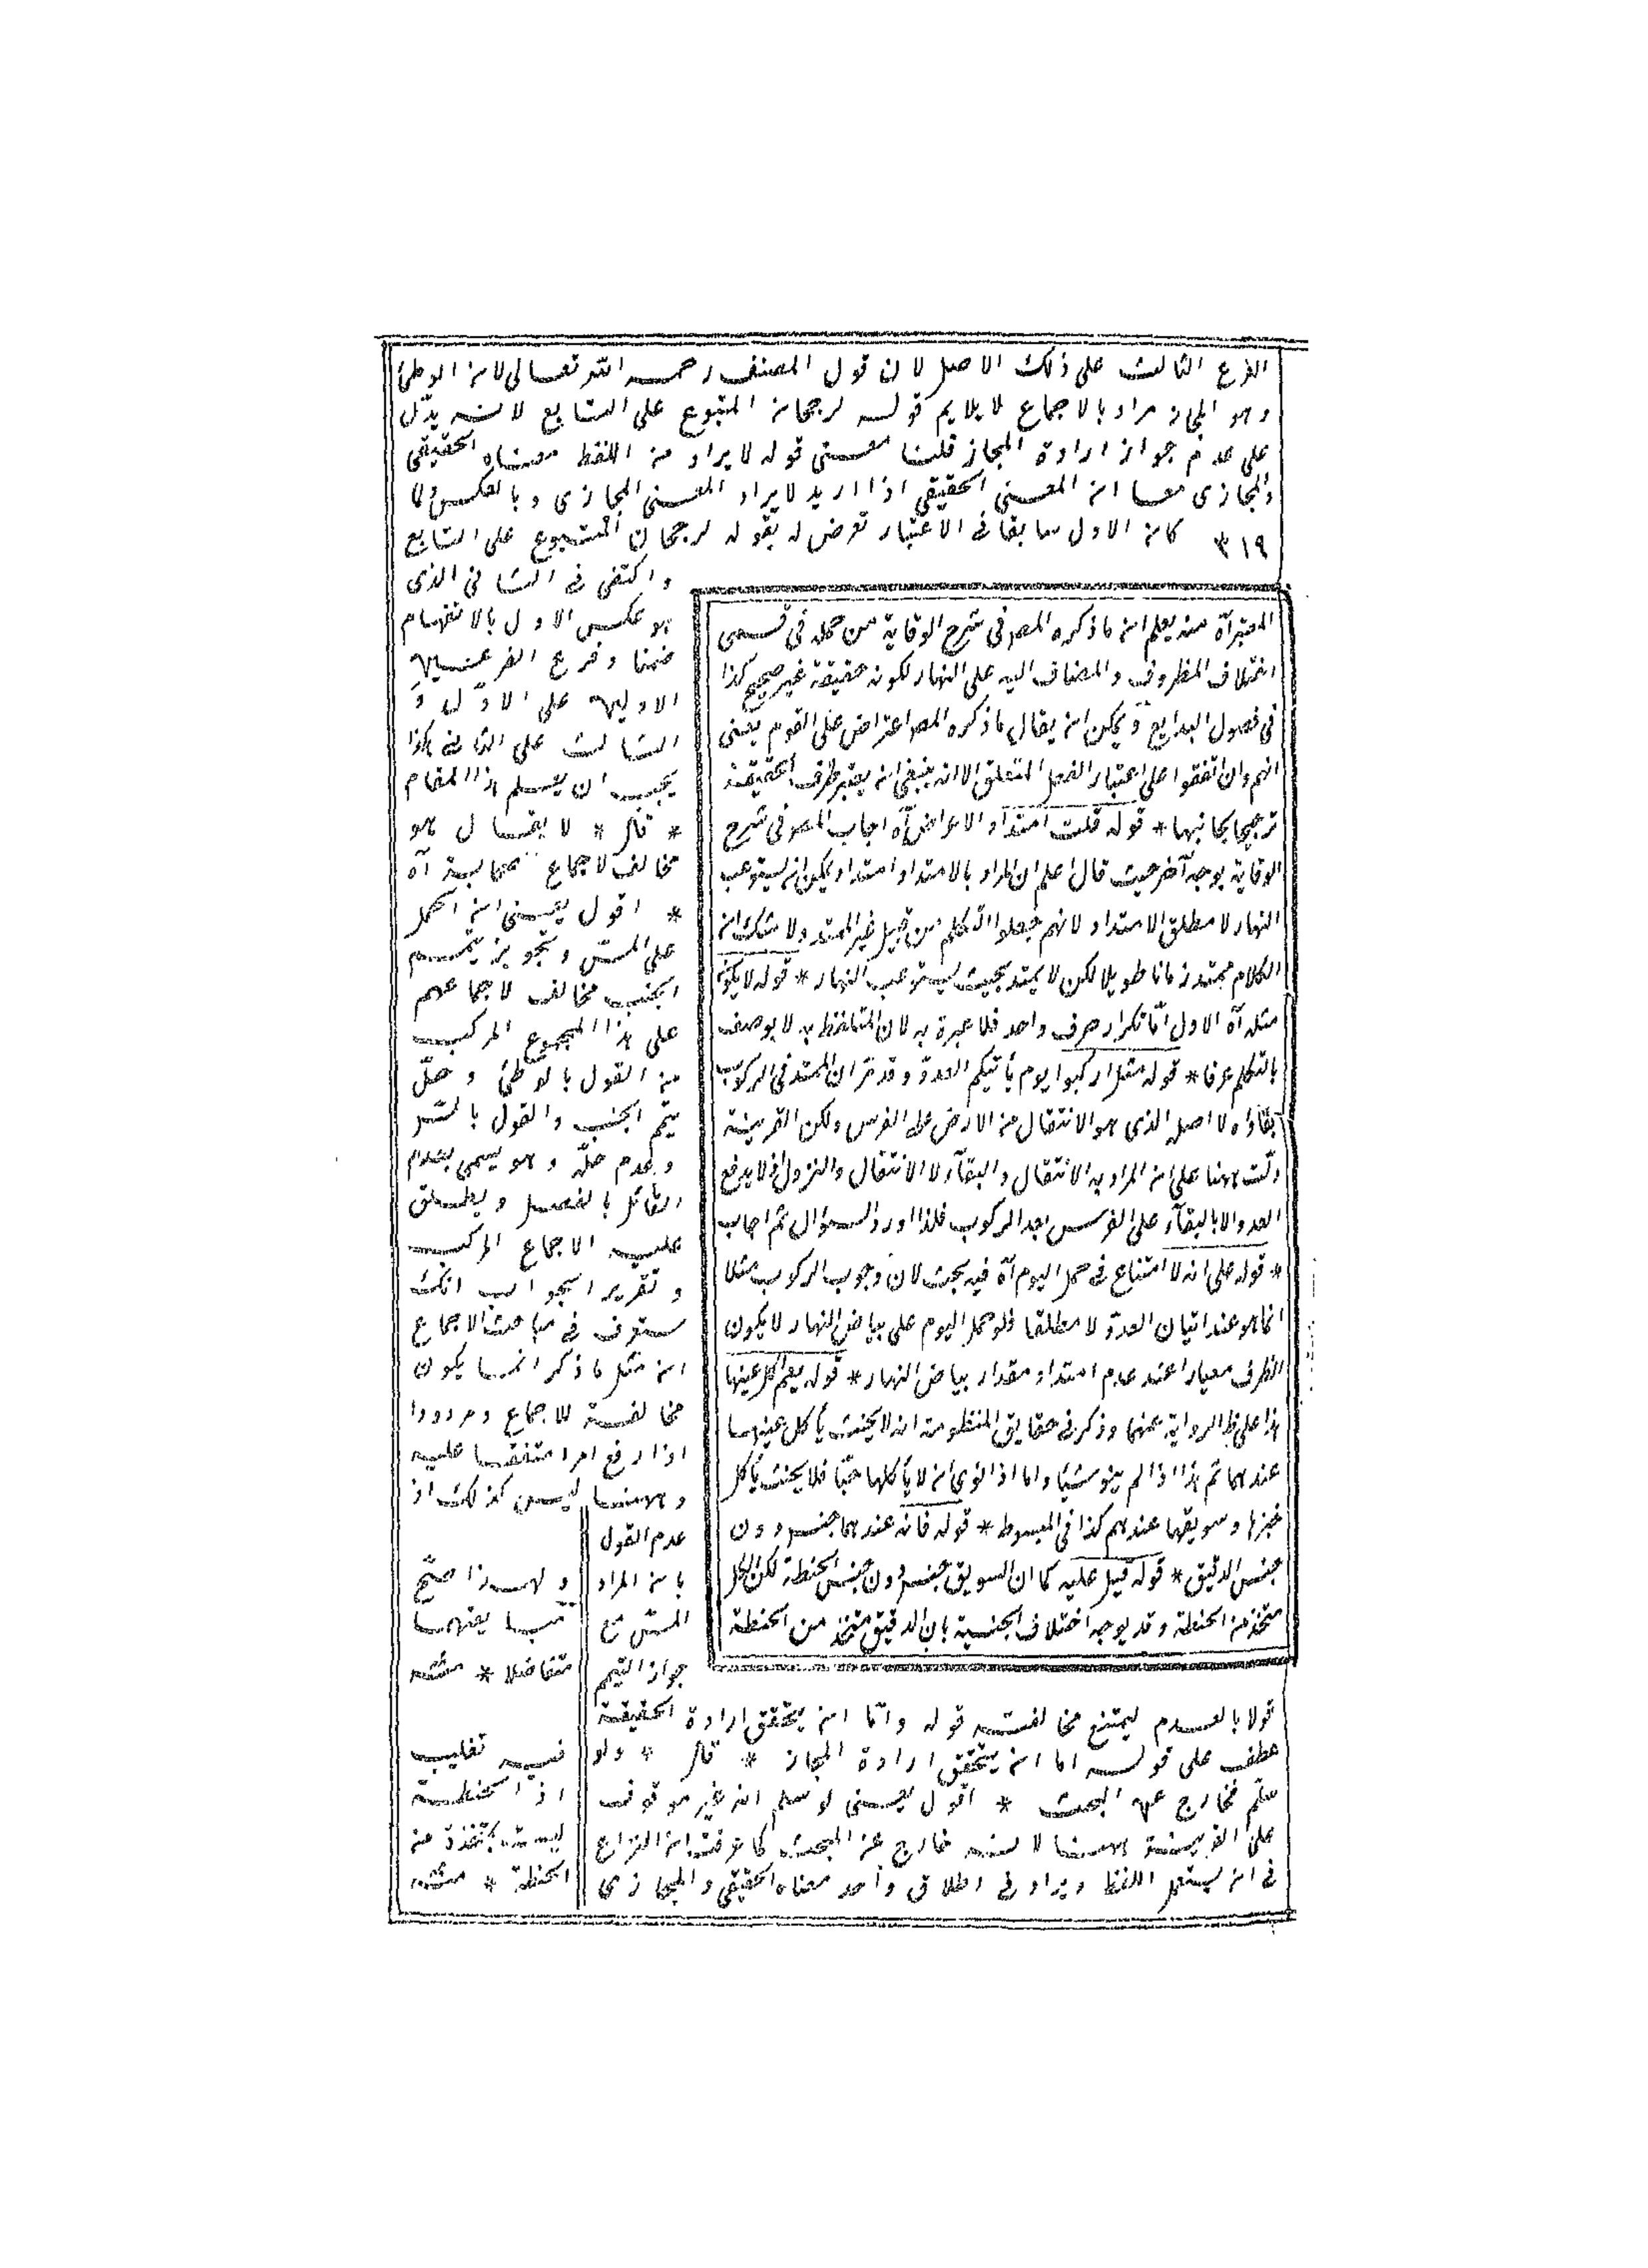 الفرع الثالث على ذلك الاصل لان قول المصنف رحمه الله تعالى لان الوطئ
وهو المجاز مراد بالاجماع لا يلايم قوله لرجحان المتبوع على التابع لانه يدل
على عدم جواز ارادة المجاز قلنا معنى قوله لا يراد من اللفظ معناه الحقيقي
والمجازى معا ان المعنى الحقيقي اذا اريد لا يراد المعنى المجازى وبالعكس ولما
٣١٩ كان الاول سابقا فى الاعتبار تعرض له بقوله لرجحان المتبوع على التابع
واكتفى فى الثانى الذى
هو عكس الاول بالانفهام
ضمنا وفرع الفرعين
الاولين على الاول و
الثالث على الثانى هكذا
يجب ان يعلم هذا المقام
* قال * لا يقال هو
مخالف لاجماع الصحابة آه
* اقول يعنى ان الحمل
على المس وتجويز تيمم
الجنب مخالف لاجماعهم
على هذا المجموع المركب
من القول بالوطئ وحل
تيمم الجنب والقول بالمس
وعدم حله وهو يسمى بعدم
القائل بالفصل ويطلق
عليه الاجماع المركب
وتقرير الجواب انك
ستعرف فى مباحث الاجماع
ان مثل ما ذكر انما يكون
مخالفة للاجماع ومردودا
اذا رفع امرا متفقا عليه
وههنا ليس كذلك اذ
عدم القول
بان المراد
المس مع
جواز التيمم
قولا بالعدم ليمتنع مخالفته قوله واما ان يتحقق ارادة الحقيقة
عطف على قوله اما ان يتحقق ارادة المجاز * قال * ولو
سلم فخارج عن البحث * اقول يعنى لو سلم انه غير موقوف
على القرينة ههنا لانه خارج عن المبحث كما عرفت ان النزاع
فى ان يستعمل اللفظ ويراد فى اطلاق واحد معناه الحقيقى والمجازى
المعتبر آه منه يعلم ان ما ذكره المص فى شرح الوقاية من حمله فى قسمى
اختلاف المظروف والمضاف اليه على النهار لكونه حقيقة غير صحيح كذا
فى فصول البدايع ويمكن ان يقال ما ذكره المص اعتراض على القوم يعنى
انهم وان اتفقوا على اعتبار الفعل المتعلق الا انه ينبغى ان يعتبر طرف الحقيقة
ترجيحا لجانبها * قوله قلت امتداد الاعراض آه اجاب المص فى شرح
الوقاية بوجه آخر حيث قال اعلم ان المراد بالامتداد امتداد يمكن ان يستوعب
النهار لا مطلق الامتداد لانهم جعلوا التكلم من قبيل غير الممتد ولا شك ان
الكلام ممتد زمانا طويلا لكن لا يمتد بحيث يستوعب النهار * قوله لا يكون
مثله آه الاول اما تكرار حرف واحد فلا عبرة به لان المتلفظ به لا يوصف
بالتكلم عرفا * قوله مثل اركبوا يوم يأتيكم العدو وقد مر ان الممتد فى الركوب
بقاؤه لا اصله الذى هو الانتقال من الارض على الفرس ولكن القرينة
دلت ههنا على ان المراد به الانتقال والبقاء لا الانتقال والنزول اذ لا يدفع
العدو الا بالبقاء على الفرس بعد الركوب فلذا اورد السؤال ثم اجاب
* قوله على انه لا امتناع فى حمل اليوم آه فيه بحث لان وجوب الركوب مثلا
انما هو عند اتيان العدو لا مطلقا فلو حمل اليوم على بياض النهار لا يكون
الظرف معيارا عند عدم امتداد مقدار بياض النهار * قوله يعم اكل عينها
هذا على ظ الرواية عنهما وذكر فى حقايق المنظومة انه لا يحنث بأكل عينها
عندهما ثم هذا اذا لم ينو شيئا واما اذا نوى ان لا يأكلها حبا فلا يحنث بأكل
خبزها وسويقها عندهم كذا فى المبسوط * قوله فانه عندهما جنس دون
جنس الدقيق * قوله قيل عليه كما ان السويق جنس دون جنس الحنطة لكن الكل
متخذ من الحنطة وقد يوجه اختلاف الجنسية بان الدقيق متخذ من الحنطة
ولهذا صح
بيعهما
متفاضلا * منه
فيه تغليب
اذ الحنطة
ليست بمتخذة من
الحنطة * منه